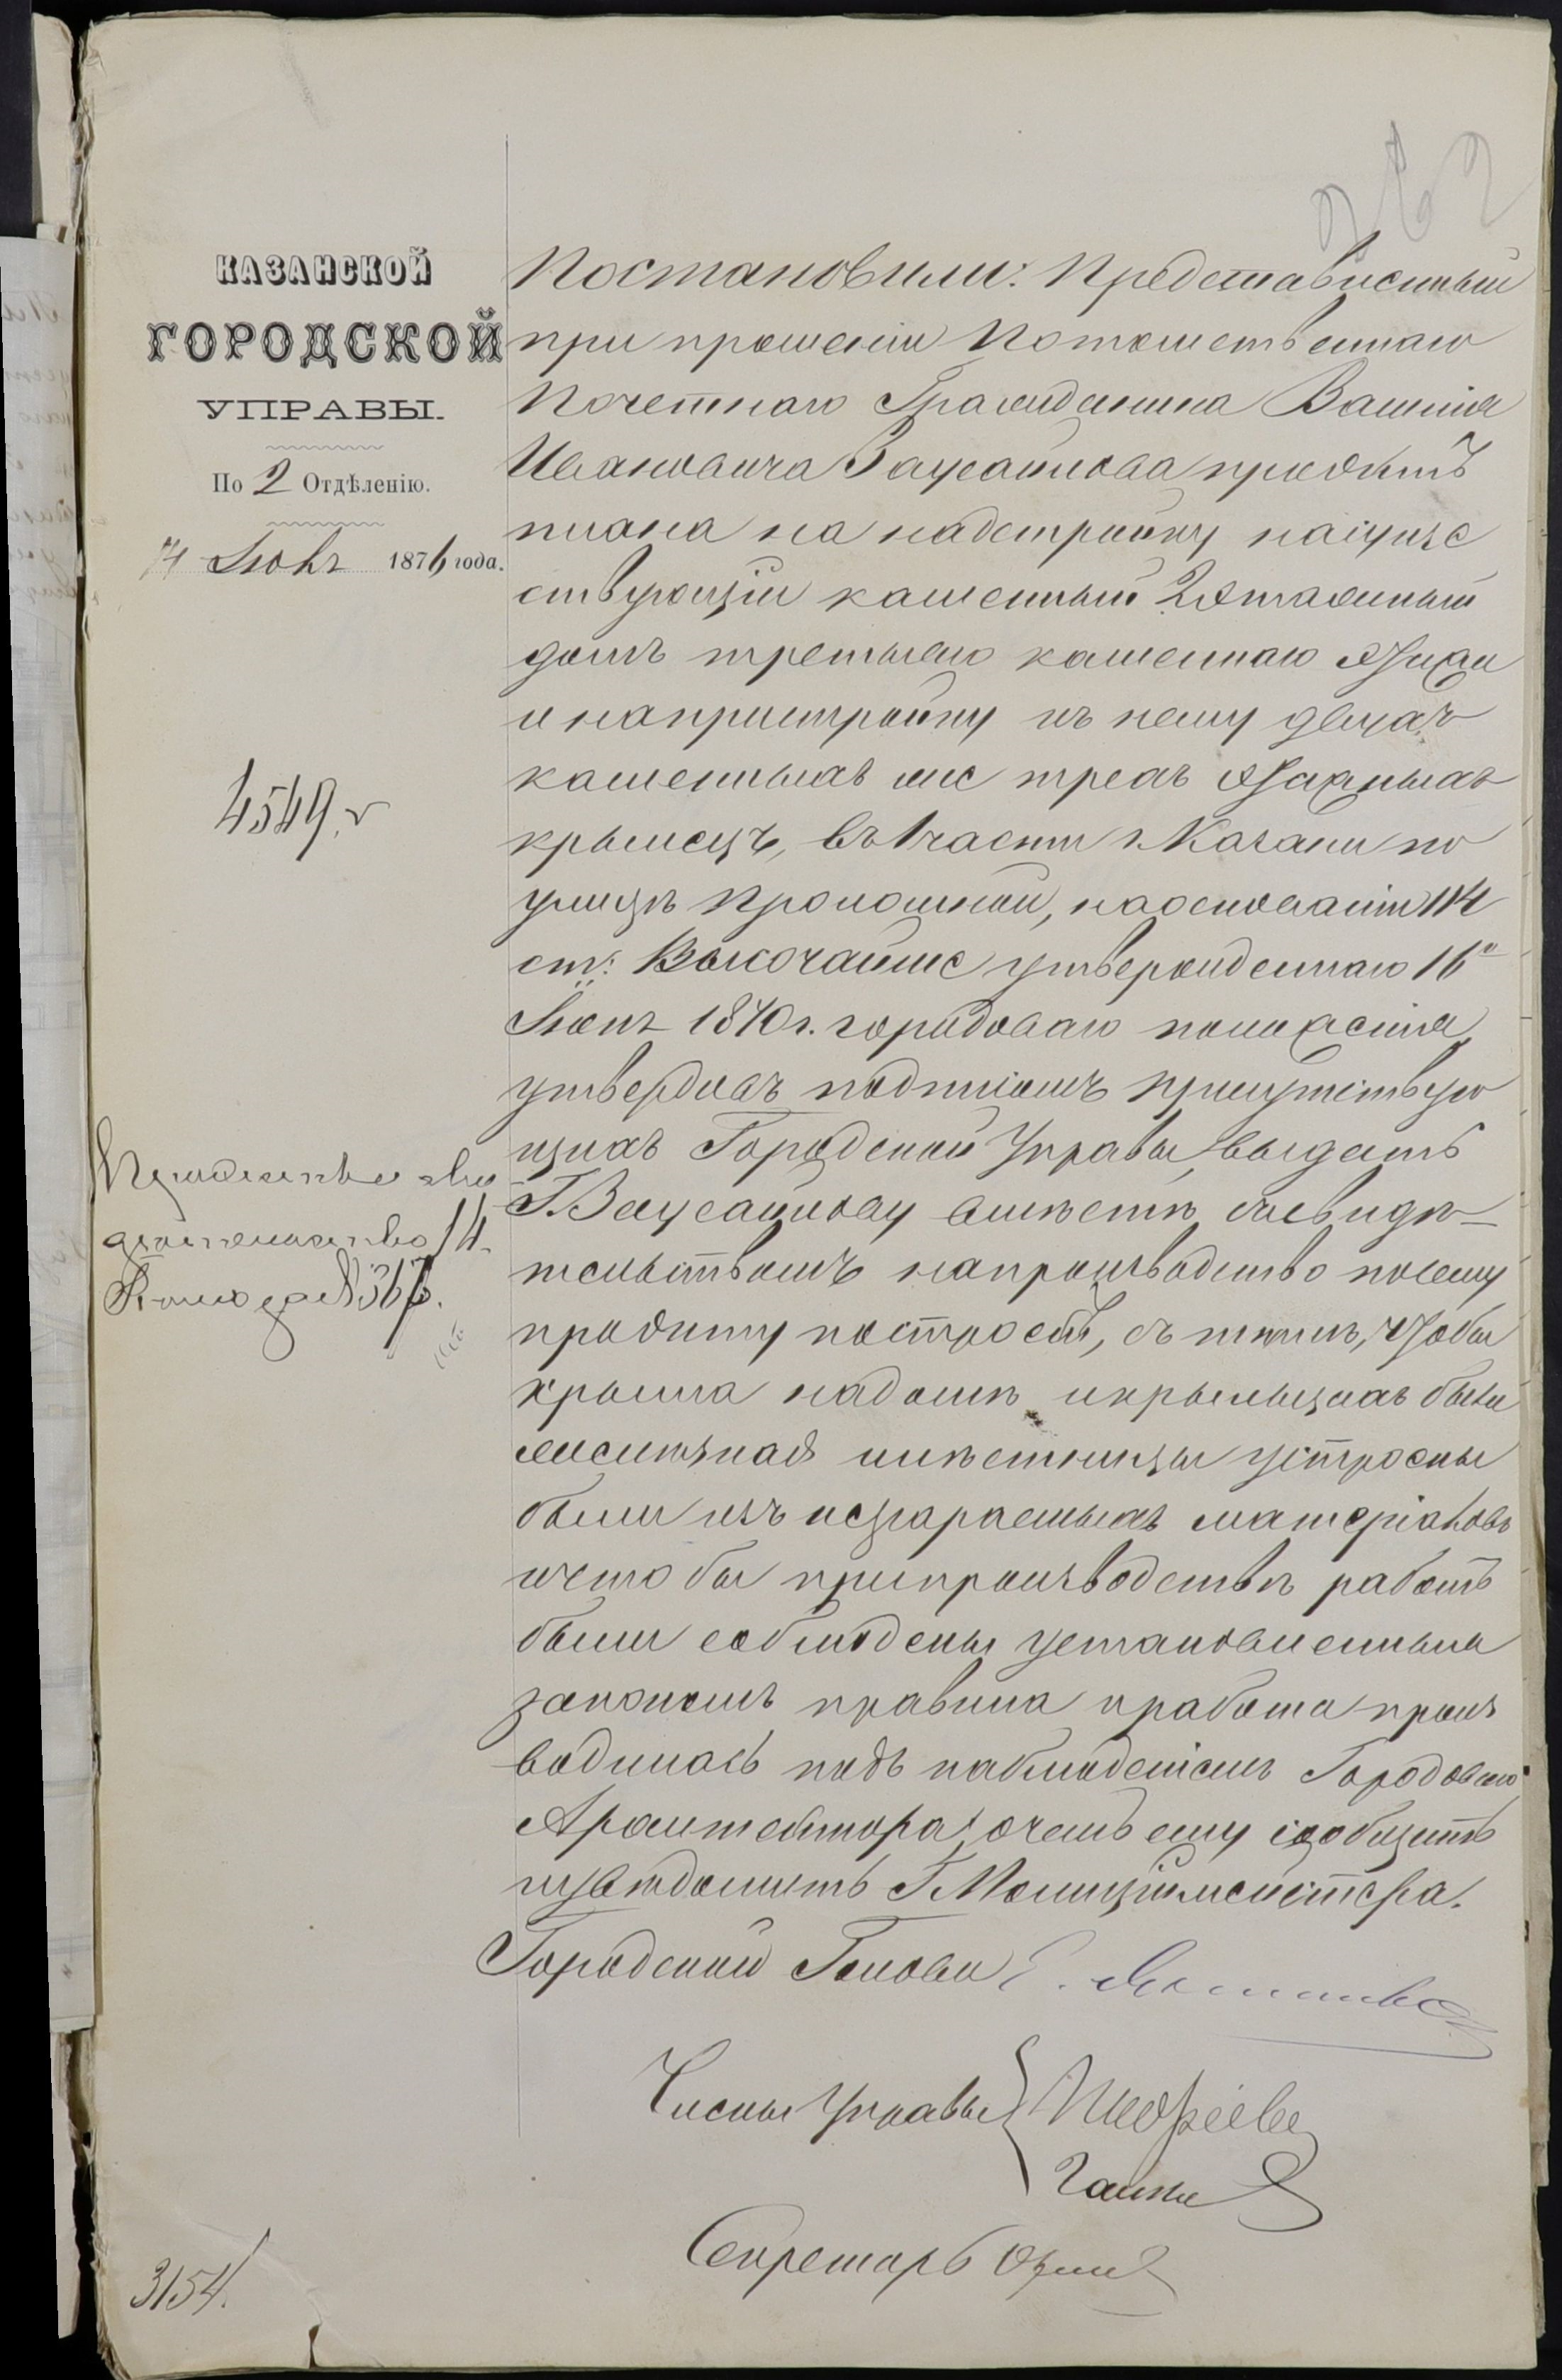 262
КАЗАНСКОЙ
ГОРОДСКОЙ
УПРАВЫ.
По 2 Отдѣленію.
14 Іюня 1876 года.
4549.
14
№ 3676.
Постановили: Представленный
при прошеніи Потомственнаго
Почетнаго Гражданина Василія
Ивановича Заусайлова проэктъ
плана на надстройку на суще
ствующій каменный 2 этажный
домъ третьяго каменнаго этажа
и на пристройку къ нему двухъ
каменныхъ же трехъ этажныхъ
крылецъ, въ 1 части г. Казани по
улицѣ Проломной, на основаніи 114
ст: Высочайше утвержденнаго 16го
Іюня 1870 г. городоваго положенія,
утвердивъ подписомъ присутствую
щихъ Городской Управы, выдать
Г. Заусайлову вмѣстѣ съ свидѣ-
тельствомъ на производство по сему
проэкту построекъ, съ тѣмъ, чтобы
крыша на домѣ и крыльцахъ была
желѣзная и лѣстницы устроены
были изъ несгараемыхъ матеріаловъ
и что бы при производствѣ работъ
были соблюдены установленныя
закономъ правила и работа произ
водилась подъ наблюденіемъ Городоваго
Архитектора, о чемъ ему сообщить
и увѣдомить Г. Полицiймейстера.
Городской Голова
Члены Управы
Секретарь
3154.